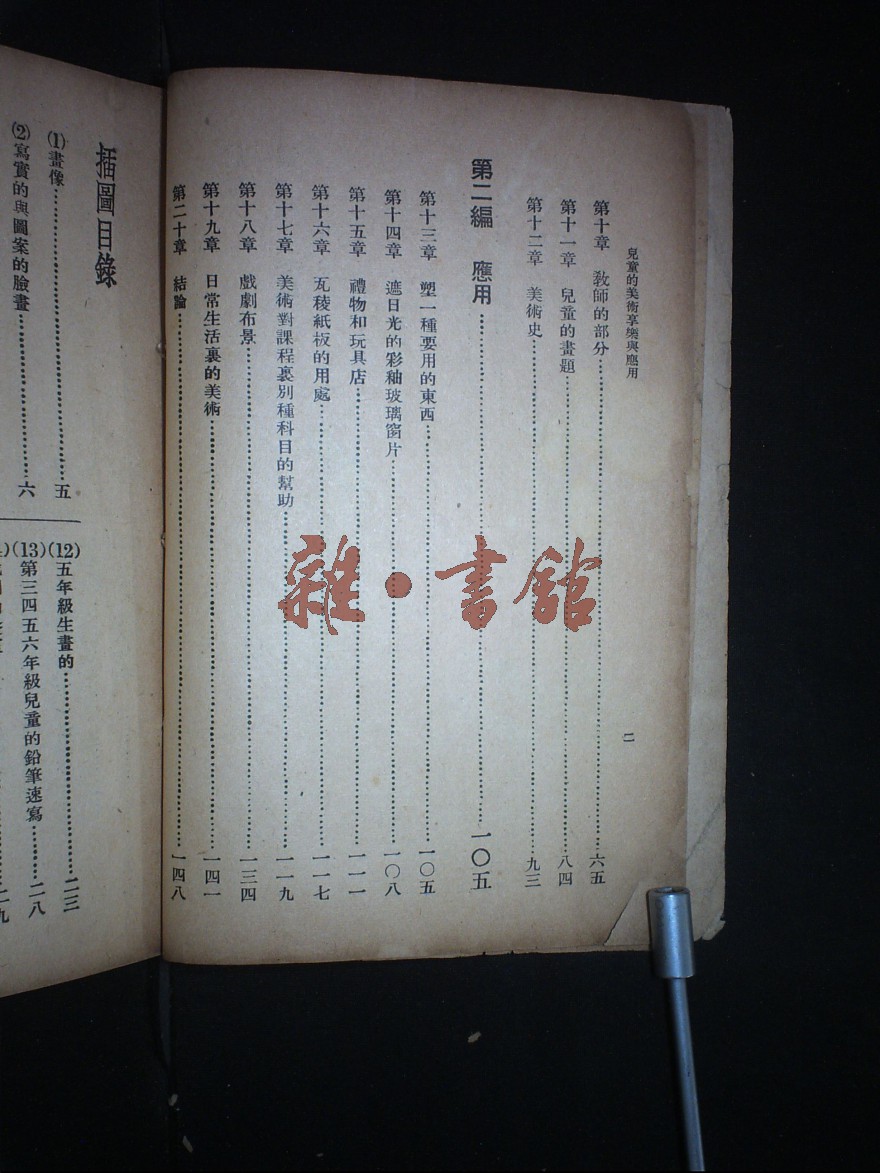 兒童的美術享樂與應用
二
第十章　敎師的部分……六五
第十一章　兒童的畫題……八四
第十二章　美術史……九三
第二編　應用……一〇五
第十三章　塑一種要用的東西……一〇五
第十四章　遮日光的彩釉玻璃窗片……一〇八
第十五章　禮物和玩具店……一一一
第十六章　瓦稜紙板的用處……一一七
第十七章　美術對課程裏別種科目的幫助……一一九
第十八章　戲劇布景……一三四
第十九章　日常生活裏的美術……一四一
第二十章　結論……一四八
雜·書館
插圖目錄
(1)畫像……五
(2)寫實的與圖案的臉畫……六
(12)五年級生畫的……二三
(13)第三四五六年級兒童的鉛筆速寫……二八
二九